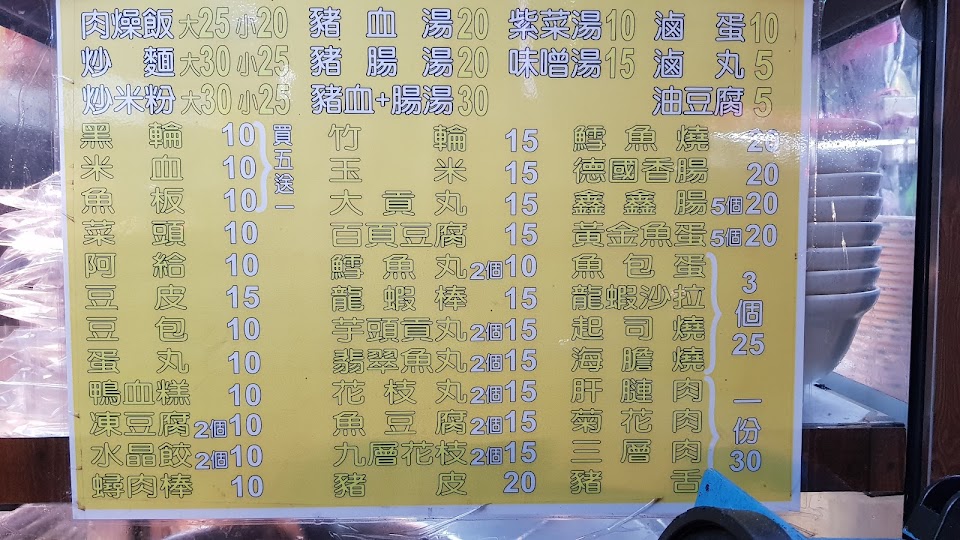 肉燥飯大25小20 豬血湯20 紫菜湯10 滷蛋10
炒麵大30小25 豬腸湯20 味噌湯15 滷丸5
炒米粉大30小25 豬血+腸湯30 油豆腐5
黑輪10 竹輪15 鱈魚燒20
米血10 玉米15 德國香腸20
魚板10 大貢丸15 鑫鑫腸5個20
買五送一
菜頭10 百頁豆腐15 黃金魚蛋5個20
阿給10 鱈魚丸2個10 魚包蛋
豆皮15 龍蝦棒15 龍蝦沙拉
豆包10 芋頭貢丸2個15 起司燒
蛋丸10 翡翠魚丸2個15 海膽燒
3個25
鴨血糕10 花枝丸2個15 肝腱肉
凍豆腐2個10 魚豆腐2個15 菊花肉
水晶餃2個10 九層花枝2個15 三層肉
蟳肉棒10 豬皮20 豬舌
一份30